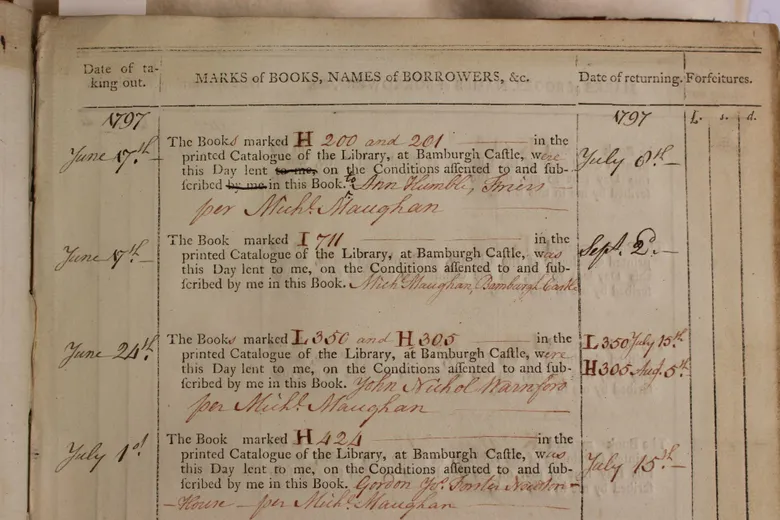 Date of ta-
king out.
MARKS of BOOKS, NAMES of BORROWERS, &c.
Date of returning.
Forfeitures.
1797
1797
L. s. d.
June 17.th
The Books marked H 200 and 201 in the
printed Catalogue of the Library, at Bamburgh Caſtle, were
this Day lent to me, on the Conditions aſſented to and ſub-
ſcribed by me in this Book. to Ann Humble, Friers
per Mich.l Maughan
July 8th
June 17th
The Book marked I 711 in the
printed Catalogue of the Library, at Bamburgh Caſtle, was
this Day lent to me, on the Conditions aſſented to and ſub-
ſcribed by me in this Book. Mich.l Maughan, Bamburgh Castle
Sept. 2d.
June 24th.
The Books marked L350 and H305 in the
printed Catalogue of the Library, at Bamburgh Caſtle, were
this Day lent to me, on the Conditions aſſented to and ſub-
ſcribed by me in this Book. John Nichol Warnford
per Mich.l Maughan
L350 July 15th
H305 Aug. 5th
July 1st
The Book marked H 424 in the
printed Catalogue of the Library, at Bamburgh Caſtle, was
this Day lent to me, on the Conditions aſſented to and ſub-
ſcribed by me in this Book. Gordon Jos. Forster
House per Mich.l Maughan
July 15th